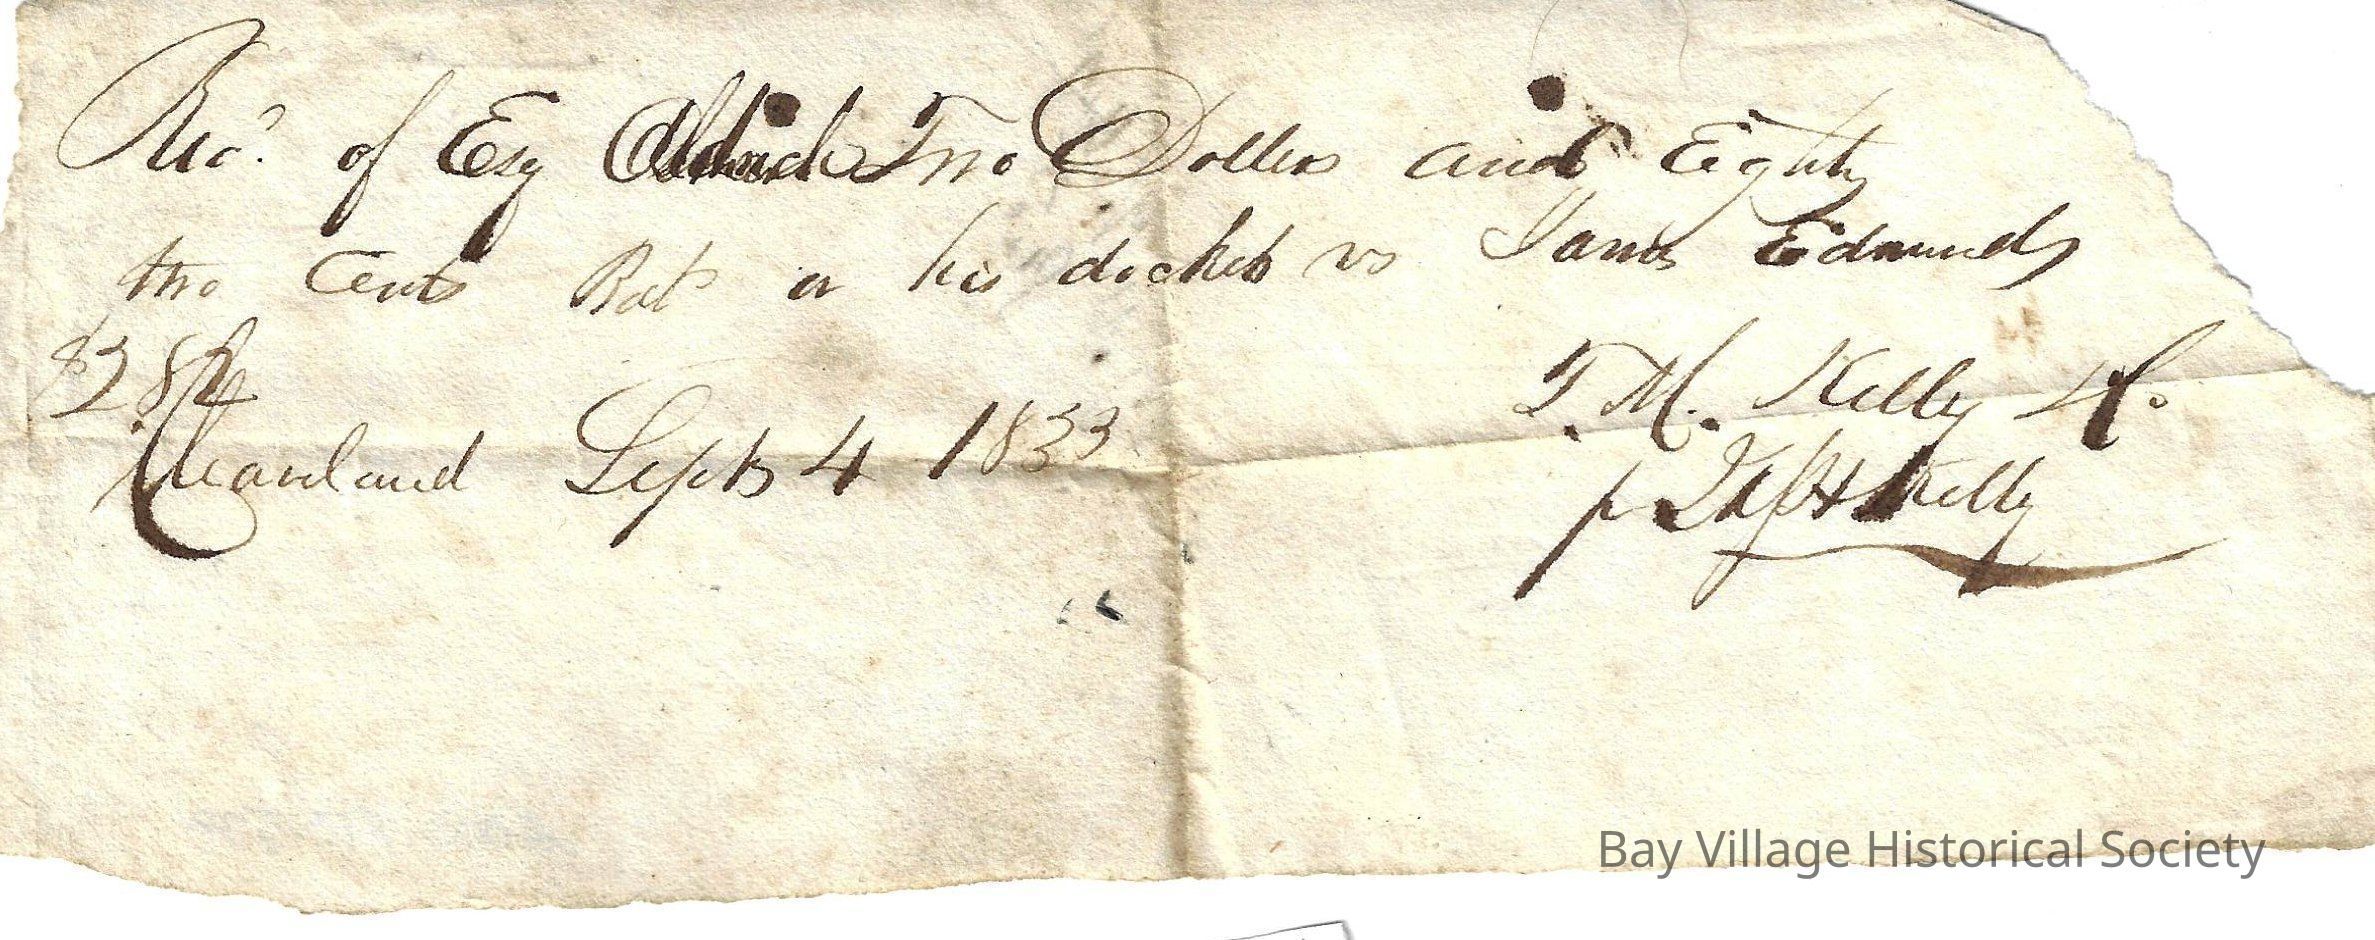 Recd. of Esq Aldrich Two Dollers and Eighty
two Cents Bal on his docket vs James Edmunds
$2 82
Cleaveland Sept 4 1833
T. M. Kelly & Co
p Kelly
Bay Village Historical Society